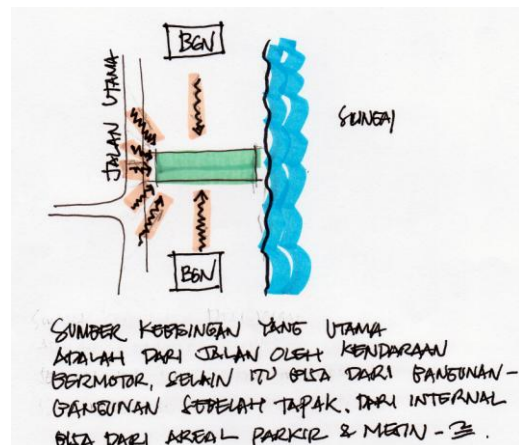 BGN
JALAN UTAMA
SUNGAI
BGN
SUMBER KEBISINGAN YANG UTAMA
ADALAH DARI JALAN OLEH KENDARAAN
BERMOTOR, SELAIN ITU BISA DARI BANGUNAN-
BANGUNAN SEBELAH TAPAK. DARI INTERNAL
BISA DARI AREAL PARKIR & MESIN-2.